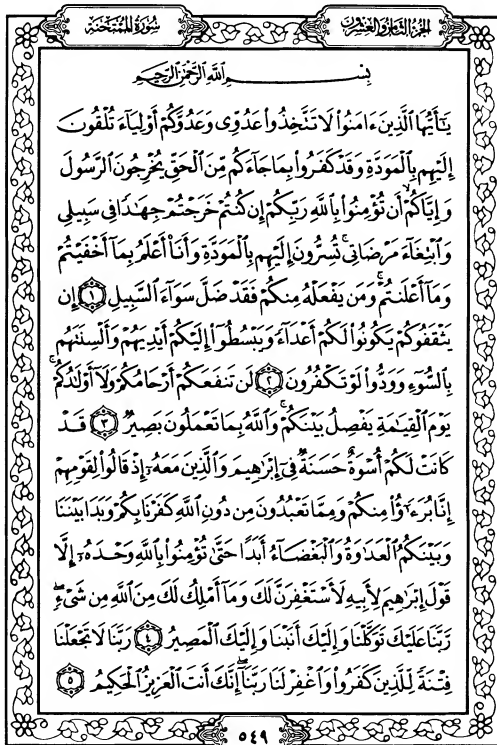 الجزء الثامن والعشرون
سورة الممتحنة
بِسْمِ اللَّهِ الرَّحْمَٰنِ الرَّحِيمِ
يَٰٓأَيُّهَا ٱلَّذِينَ ءَامَنُوا۟ لَا تَتَّخِذُوا۟ عَدُوِّى وَعَدُوَّكُمْ أَوْلِيَآءَ تُلْقُونَ
إِلَيْهِم بِٱلْمَوَدَّةِ وَقَدْ كَفَرُوا۟ بِمَا جَآءَكُم مِّنَ ٱلْحَقِّ يُخْرِجُونَ ٱلرَّسُولَ
وَإِيَّاكُمْ ۙ أَن تُؤْمِنُوا۟ بِٱللَّهِ رَبِّكُمْ إِن كُنتُمْ خَرَجْتُمْ جِهَٰدًا فِى سَبِيلِى
وَٱبْتِغَآءَ مَرْضَاتِى ۚ تُسِرُّونَ إِلَيْهِم بِٱلْمَوَدَّةِ وَأَنَا۠ أَعْلَمُ بِمَآ أَخْفَيْتُمْ
وَمَآ أَعْلَنتُمْ ۚ وَمَن يَفْعَلْهُ مِنكُمْ فَقَدْ ضَلَّ سَوَآءَ ٱلسَّبِيلِ ١ إِن
يَثْقَفُوكُمْ يَكُونُوا۟ لَكُمْ أَعْدَآءً وَيَبْسُطُوٓا۟ إِلَيْكُمْ أَيْدِيَهُمْ وَأَلْسِنَتَهُم
بِٱلسُّوٓءِ وَوَدُّوا۟ لَوْ تَكْفُرُونَ ٢ لَن تَنفَعَكُمْ أَرْحَامُكُمْ وَلَآ أَوْلَٰدُكُمْ ۚ
يَوْمَ ٱلْقِيَٰمَةِ يَفْصِلُ بَيْنَكُمْ ۚ وَٱللَّهُ بِمَا تَعْمَلُونَ بَصِيرٌ ٣ قَدْ
كَانَتْ لَكُمْ أُسْوَةٌ حَسَنَةٌ فِىٓ إِبْرَٰهِيمَ وَٱلَّذِينَ مَعَهُۥٓ إِذْ قَالُوا۟ لِقَوْمِهِمْ
إِنَّا بُرَءَٰٓؤُا۟ مِنكُمْ وَمِمَّا تَعْبُدُونَ مِن دُونِ ٱللَّهِ كَفَرْنَا بِكُمْ وَبَدَا بَيْنَنَا
وَبَيْنَكُمُ ٱلْعَدَٰوَةُ وَٱلْبَغْضَآءُ أَبَدًا حَتَّىٰ تُؤْمِنُوا۟ بِٱللَّهِ وَحْدَهُۥٓ إِلَّا
قَوْلَ إِبْرَٰهِيمَ لِأَبِيهِ لَأَسْتَغْفِرَنَّ لَكَ وَمَآ أَمْلِكُ لَكَ مِنَ ٱللَّهِ مِن شَىْءٍ ۖ
رَّبَّنَا عَلَيْكَ تَوَكَّلْنَا وَإِلَيْكَ أَنَبْنَا وَإِلَيْكَ ٱلْمَصِيرُ ٤ رَبَّنَا لَا تَجْعَلْنَا
فِتْنَةً لِّلَّذِينَ كَفَرُوا۟ وَٱغْفِرْ لَنَا رَبَّنَآ ۖ إِنَّكَ أَنتَ ٱلْعَزِيزُ ٱلْحَكِيمُ ٥
٥٤٩